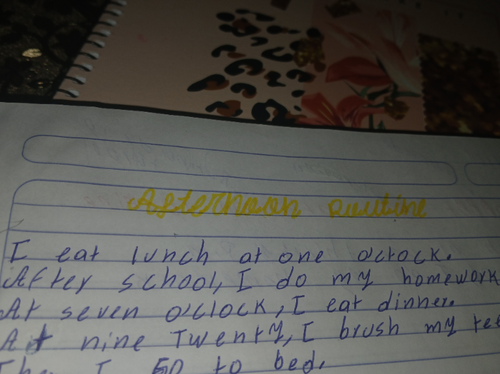 Afternoon routine
I eat lunch at one o'clock.
After school, I do my homework
At seven o'clock, I eat dinner.
At nine Twenty, I brush my tee
Then I go to bed.